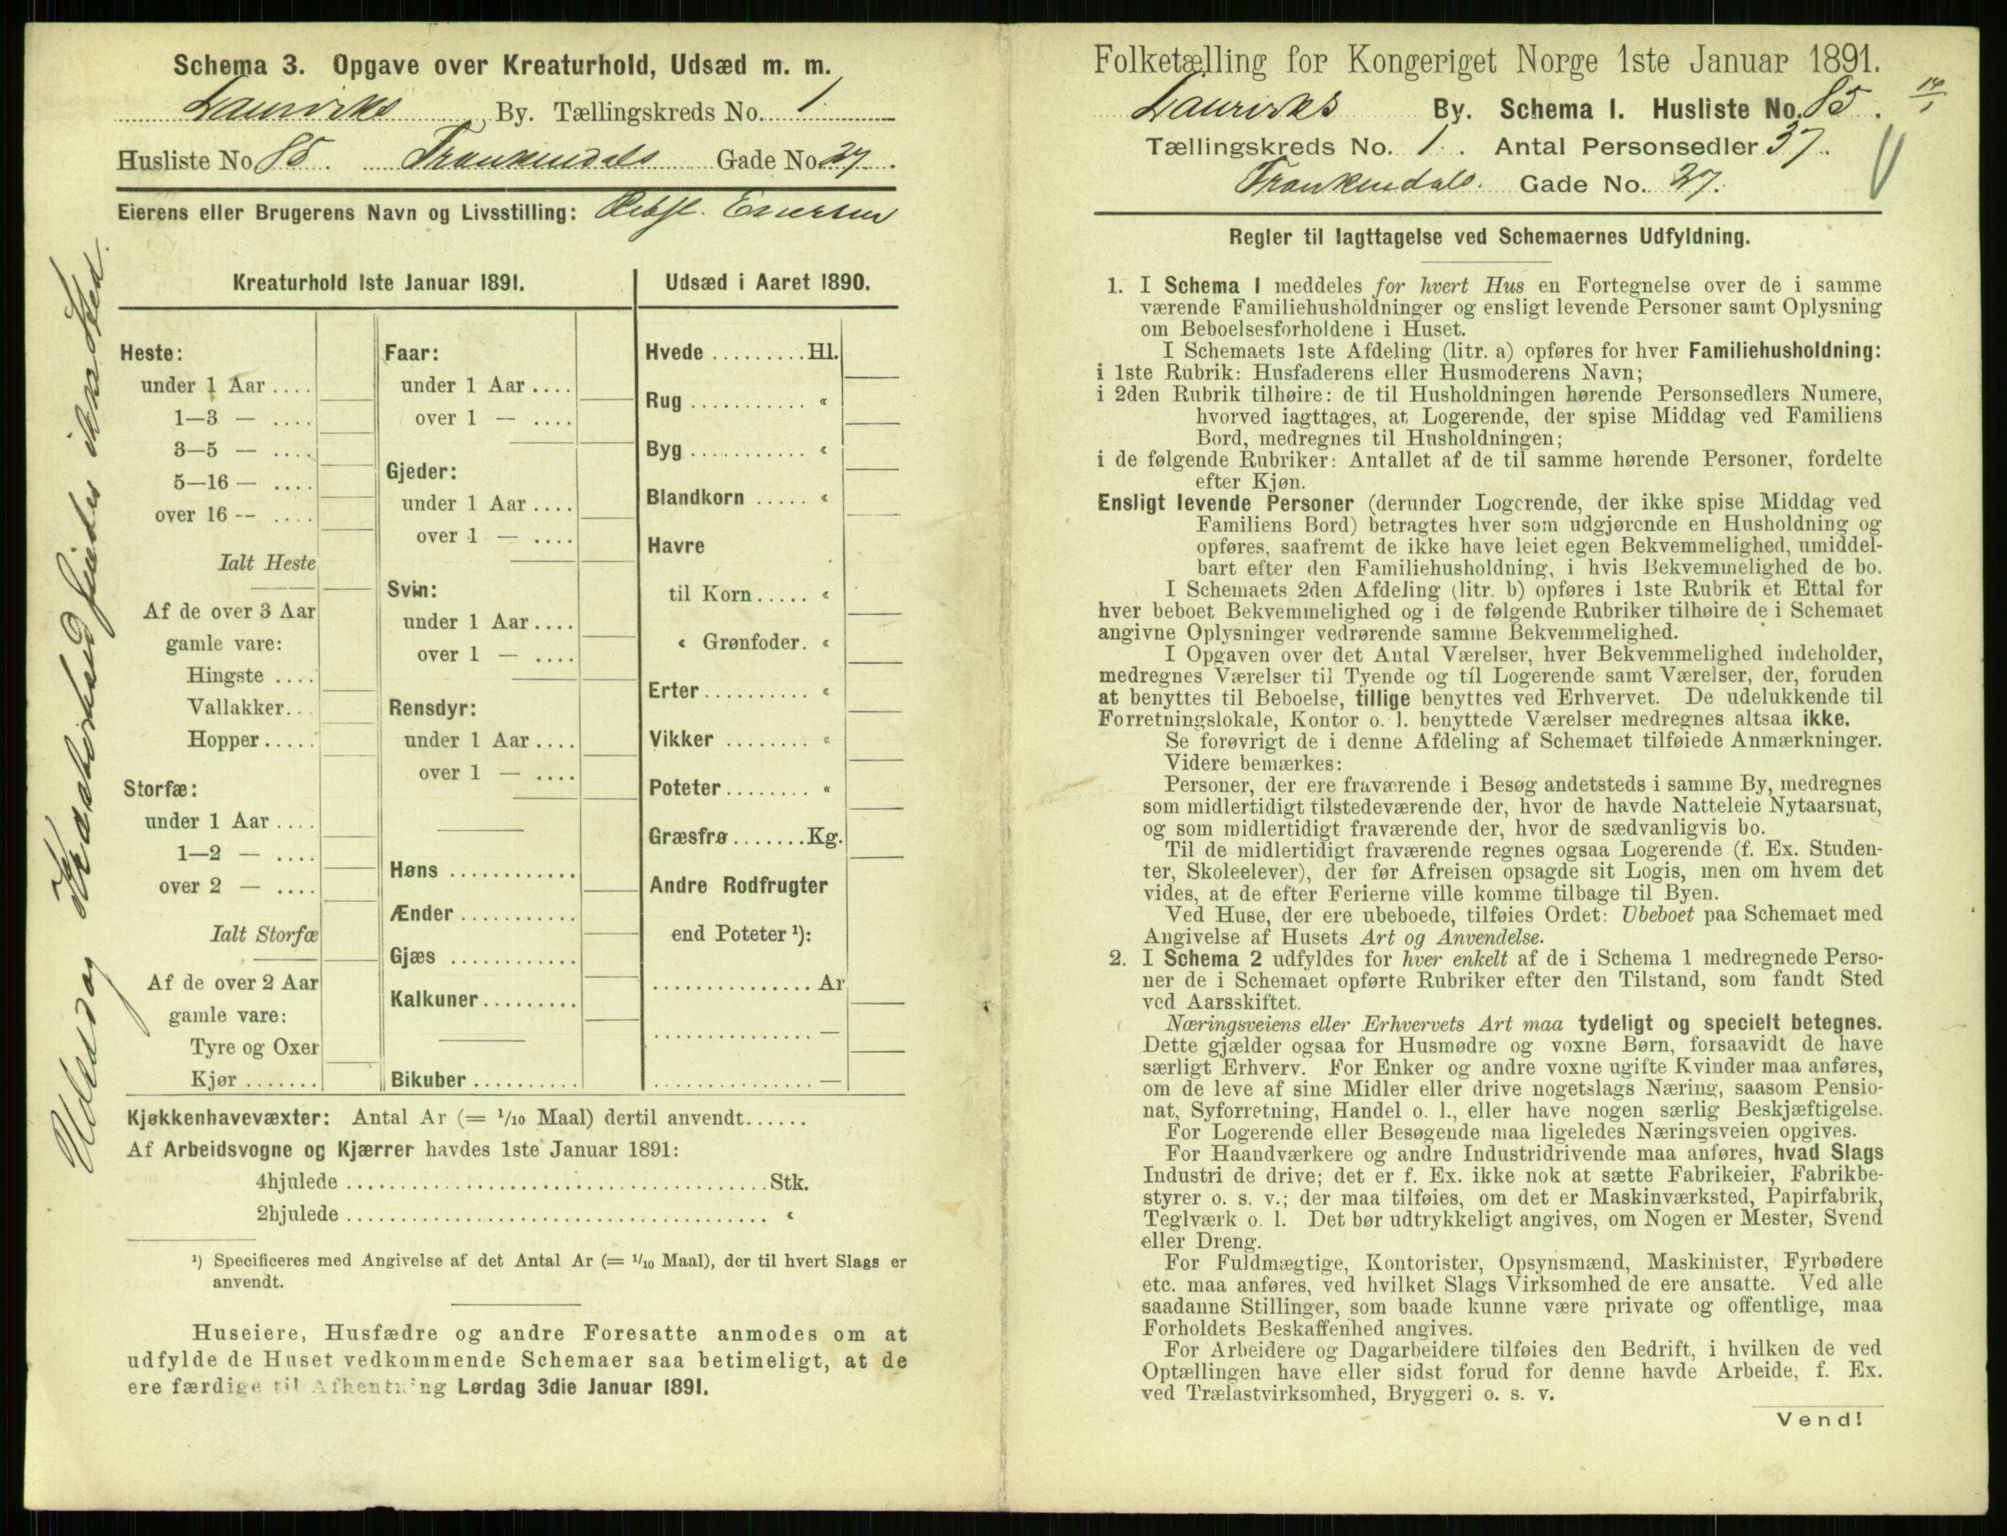 Schema 3. Opgave over Kreaturhold, Udsæd m. m.
Laurviks By. Tællingskreds No. 1
Husliste No 85. Frankendals Gade No 27.
Eierens eller Brugerens Navn og Livsstilling:
Udsæd og Kreaturhold findes ikke Sted.
Kreaturhold 1ste Januar 1891.
Heste:
under 1 Aar ....
1—3 — ....
3—5 — ....
5—16 — ....
over 16 -- ....
Ialt Heste
Af de over 3 Aar
gamle vare:
Hingste ....
Vallakker...
Hopper.....
Storfæ:
under 1 Aar ....
1—2 — ....
over 2 — ....
Ialt Storfæ
Af de over 2 Aar
gamle vare:
Tyre og Oxer
Kjør .......
Faar:
under 1 Aar ....
over 1 — ....
Gjeder:
under 1 Aar ....
over 1 — ....
Svin:
under 1 Aar....
over 1 — ....
Rensdyr:
under 1 Aar....
over 1 — ....
Høns ............
Ænder...........
Gjæs ............
Kalkuner.........
Bikuber ..........
Udsæd i Aaret 1890.
Hvede .........Hl.
Rug ........... «
Byg ........... «
Blandkorn ..... «
Havre
til Korn..... «
« Grønfoder. «
Erter.......... «
Vikker ........ «
Poteter........ «
Græsfrø.......Kg.
Andre Rodfrugter
end Poteter ¹):
...............Ar
............... —
...............—
Kjøkkenhavevæxter: Antal Ar (= 1/10 Maal) dertil anvendt......
Af Arbeidsvogne og Kjærrer havdes 1ste Januar 1891:
4hjulede ......................................Stk.
2hjulede ...................................... «
¹) Specificeres med Angivelse af det Antal Ar (= 1/10 Maal), der til hvert Slags er
anvendt.
Huseiere, Husfædre og andre Foresatte anmodes om at
udfylde de Huset vedkommende Schemaer saa betimeligt, at de
ere færdige til Afhentning Lørdag 3die Januar 1891.
Folketælling for Kongeriget Norge 1ste Januar 1891.
Laurviks By. Schema I. Husliste No. 85.
Tællingskreds No. 1. Antal Personsedler 37.
Frankendals. Gade No. 27.
Regler til Iagttagelse ved Schemaernes Udfyldning.
1. I Schema 1 meddeles for hvert Hus en Fortegnelse over de i samme
værende Familiehusholdninger og ensligt levende Personer samt Oplysning
om Beboelsesforholdene i Huset.
I Schemaets 1ste Afdeling (litr. a) opføres for hver Familiehusholdning:
i 1ste Rubrik: Husfaderens eller Husmoderens Navn;
i 2den Rubrik tilhøire: de til Husholdningen hørende Personsedlers Numere,
hvorved iagttages, at Logerende, der spise Middag ved Familiens
Bord, medregnes til Husholdningen;
i de følgende Rubriker: Antallet af de til samme hørende Personer, fordelte
efter Kjøn.
Ensligt levende Personer (derunder Logerende, der ikke spise Middag ved
Familiens Bord) betragtes hver som udgjørende en Husholdning og
opføres, saafremt de ikke have leiet egen Bekvemmelighed, umiddel-
bart efter den Familiehusholdning, i hvis Bekvemmelighed de bo.
I Schemaets 2den Afdeling (litr. b) opføres i 1ste Rubrik et Ettal for
hver beboet Bekvemmelighed og i de følgende Rubriker tilhøire de i Schemaet
angivne Oplysninger vedrørende samme Bekvemmelighed.
I Opgaven over det Antal Værelser, hver Bekvemmelighed indeholder,
medregnes Værelser til Tyende og til Logerende samt Værelser, der, foruden
at benyttes til Beboelse, tillige benyttes ved Erhvervet. De udelukkende til
Forretningslokale, Kontor o. l. benyttede Værelser medregnes altsaa ikke.
Se forøvrigt de i denne Afdeling af Schemaet tilføiede Anmærkninger.
Videre bemærkes:
Personer, der ere fraværende i Besøg andetsteds i samme By, medregnes
som midlertidigt tilstedeværende der, hvor de havde Natteleie Nytaarsnat,
og som midlertidigt fraværende der, hvor de sædvanligvis bo.
Til de midlertidigt fraværende regnes ogsaa Logerende (f. Ex. Studen-
ter, Skoleelever), der før Afreisen opsagde sit Logis, men om hvem det
vides, at de efter Ferierne ville komme tilbage til Byen.
Ved Huse, der ere ubeboede, tilføies Ordet: Ubeboet paa Schemaet med
Angivelse af Husets Art og Anvendelse.
2. I Schema 2 udfyldes for hver enkelt af de i Schema 1 medregnede Perso-
ner de i Schemaet opførte Rubriker efter den Tilstand, som fandt Sted
ved Aarsskiftet.
Næringsveiens eller Erhvervets Art maa tydeligt og specielt betegnes.
Dette gjælder ogsaa for Husmødre og voxne Børn, forsaavidt de have
særligt Erhverv. For Enker og andre voxne ugifte Kvinder maa anføres,
om de leve af sine Midler eller drive nogetslags Næring, saasom Pensio-
nat, Syforretning, Handel o. l., eller have nogen særlig Beskjæftigelse.
For Logerende eller Besøgende maa ligeledes Næringsveien opgives.
For Haandværkere og andre Industridrivende maa anføres, hvad Slags
Industri de drive; det er f. Ex. ikke nok at sætte Fabrikeier, Fabrikbe-
styrer o. s. v.; der maa tilføies, om det er Maskinværksted, Papirfabrik,
Teglværk o. l. Det bør udtrykkeligt angives, om Nogen er Mester, Svend
eller Dreng.
For Fuldmægtige, Kontorister, Opsynsmænd, Maskinister, Fyrbødere
etc. maa anføres, ved hvilket Slags Virksomhed de ere ansatte. Ved alle
saadanne Stillinger, som baade kunne være private og offentlige, maa
Forholdets Beskaffenhed angives.
For Arbeidere og Dagarbeidere tilføies den Bedrift, i hvilken de ved
Optællingen have eller sidst forud for denne havde Arbeide, f. Ex.
ved Trælastvirksomhed, Bryggeri o. s. v.
Vend!